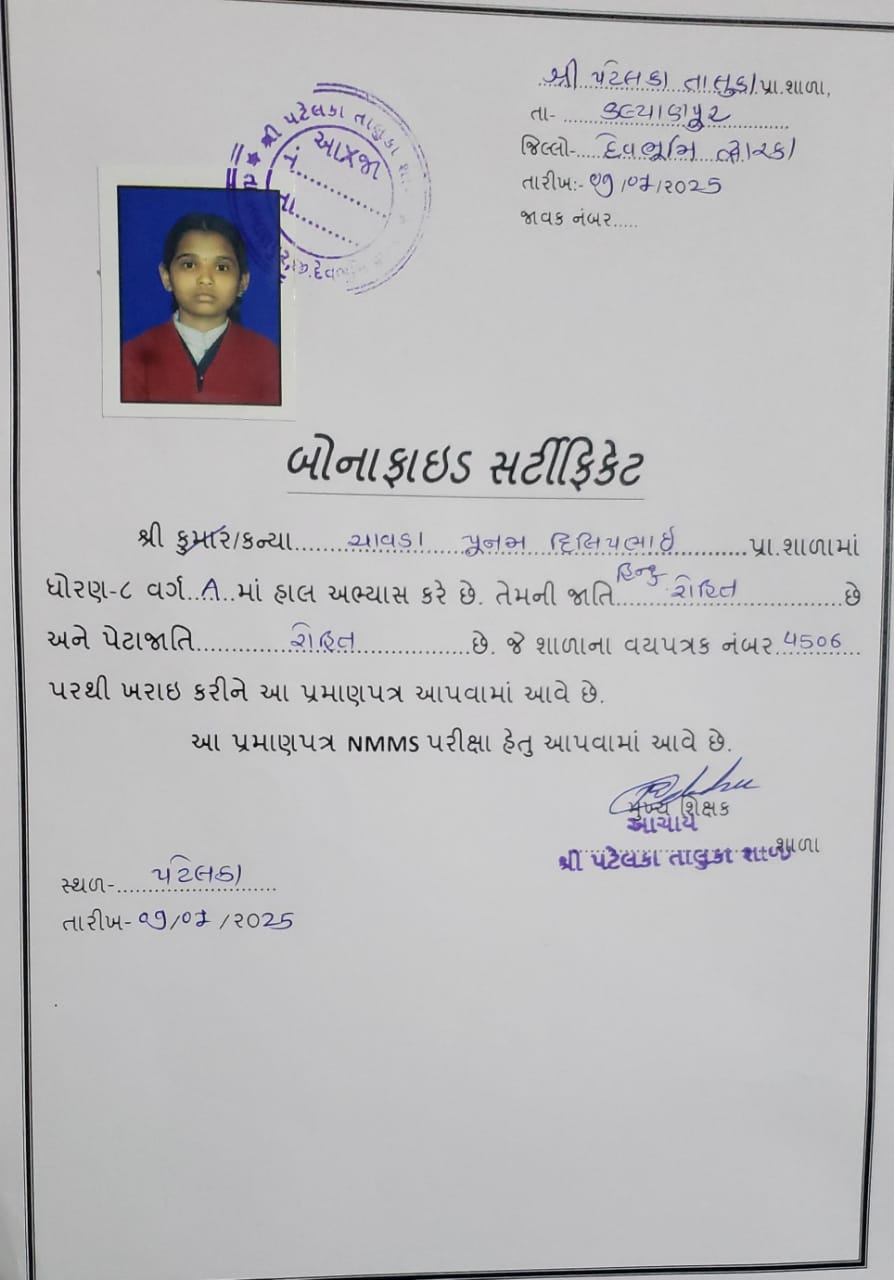 શ્રી પટેલકા તાલુકા પ્રા.શાળા,
તા-....કલ્યાણપુર....
જિલ્લો-....દેવભૂમિ દ્વારકા
તારીખ:- ૦૧/૦૭/૨૦૨૫
જાવક નંબર.....
શ્રી પટેલકા તાલુકા શા
આ/જા
નં..............
તા..............
બોનાફાઇડ સર્ટીફિકેટ
શ્રી કુમાર/કન્યા.......ચાવડા પૂનમ દિલિપભાઇ..........પ્રા.શાળામાં
ધોરણ-૮ વર્ગ..A..માં હાલ અભ્યાસ કરે છે. તેમની જાતિ..હિન્દુ રોહિત..............છે
અને પેટાજાતિ.............રોહિત...............છે. જે શાળાના વયપત્રક નંબર..૫૬૦૬...
પરથી ખરાઇ કરીને આ પ્રમાણપત્ર આપવામાં આવે છે.
આ પ્રમાણપત્ર NMMS પરીક્ષા હેતુ આપવામાં આવે છે.
મુખ્ય શિક્ષક
આચાર્ય
....................શાળા
શ્રી પટેલકા તાલુકા શાળા
સ્થળ-....પટેલકા....
તારીખ- ૦૧/૦૭/૨૦૨૫